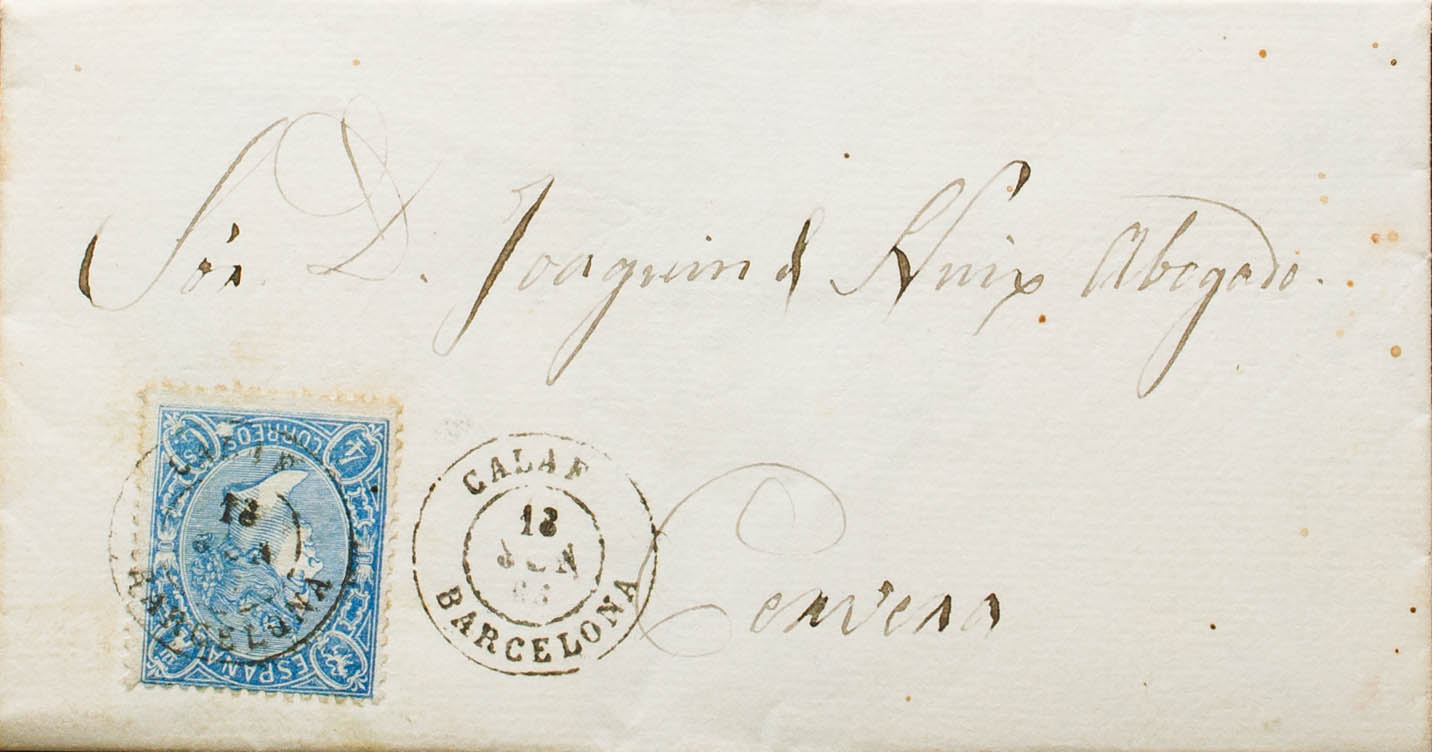 Sór. D. Joaquin de Nuix Abogado.
Cervera
CALAF
18
JUN
BARCELONA
CORREOS
4
ESPAÑA
BARCELONA
18